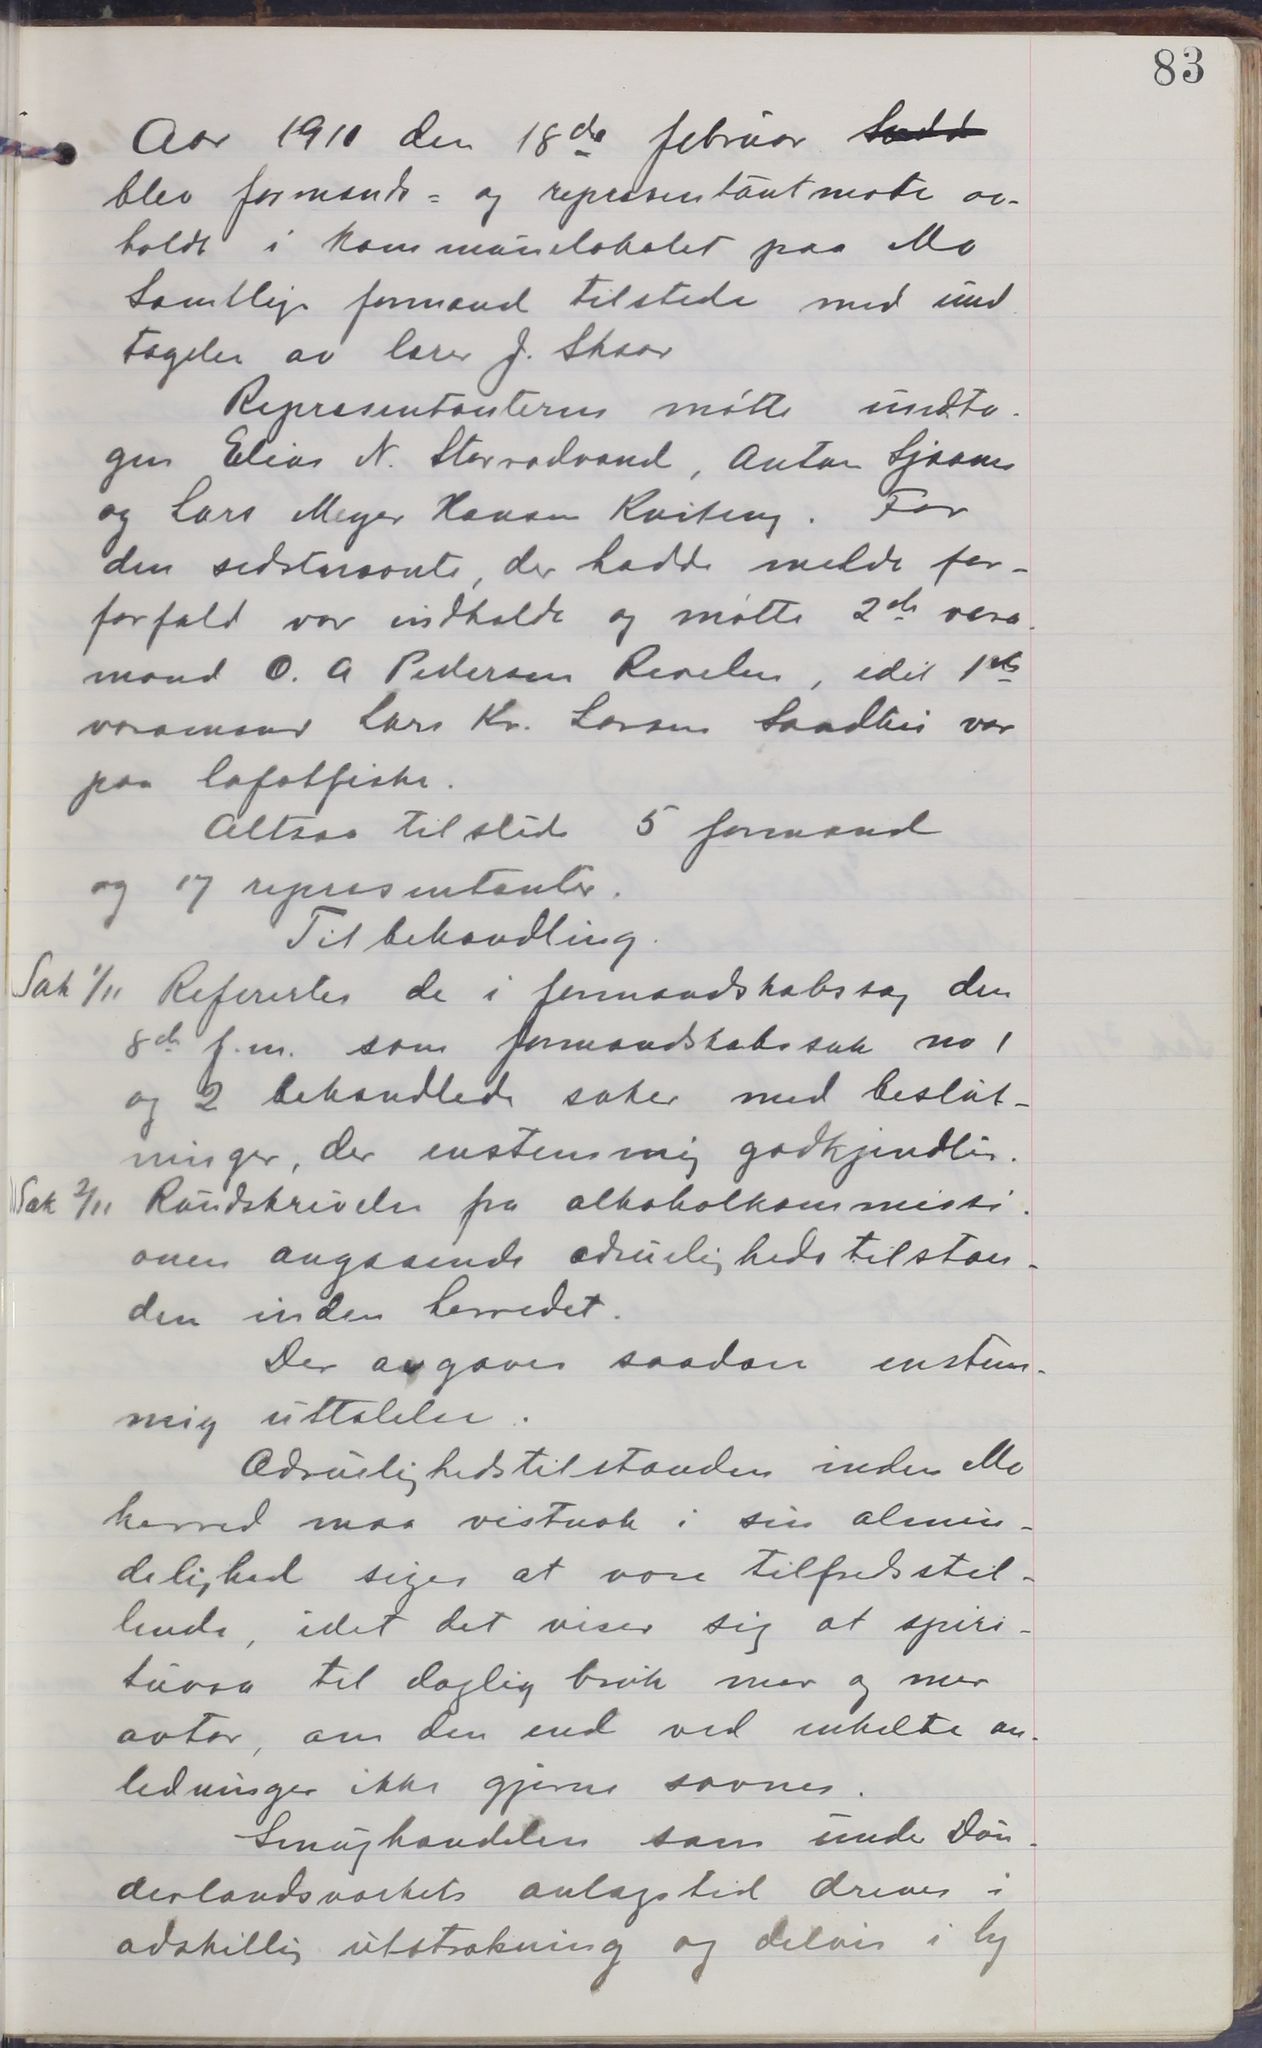 83
Aar 1911 den 18de februar
blev formands= og representantmøte av-
holdt i kommunelokalet paa Mo
Samtlige formænd tilstede med und
tagelse av lærer J. Skaar
Representanterne møtte undta-
gen Elias N. Storrødvand, Anton Sjaanes
og Lars Meyer Hansen Kviteng. For
den sidstnævnte, der hadde meldt for-
forfald var indkaldt og møtte 2den vara-
mand O. A Pedersen Revelen, idet 1ste
varamand Lars Kr. Larsen Sandhei var
paa lofotfiske.
Altsaa tilstede 5 formænd
og 17 representanter.
Til behandling.
Sak 1/11 Referertes de i formandskabssag den
8de f.m. som formandskabssak no 1
og 2 behandlede saker med beslut-
ninger, der enstemmig godkjendtes.
Sak 2/11 Rundskrivelse fra alkoholkommissi-
onen angaaende ædruelighedstilstan-
den inden herredet.
Der avgaves saadan enstem-
mig uttalelse.
Ædruelighedstilstanden inden Mo
herred maa vistnok i sin almin-
delighed siges at være tilfredsstil-
lende, idet det viser sig at spiri-
tuosa til daglig bruk mer og mer
avtar, om den end ved enkelte an-
ledninger ikke gjerne savnes.
Smughandelen som under Dun-
derlandsverkets anlægstid dreves i
adskillig utstrækning og delvis i by